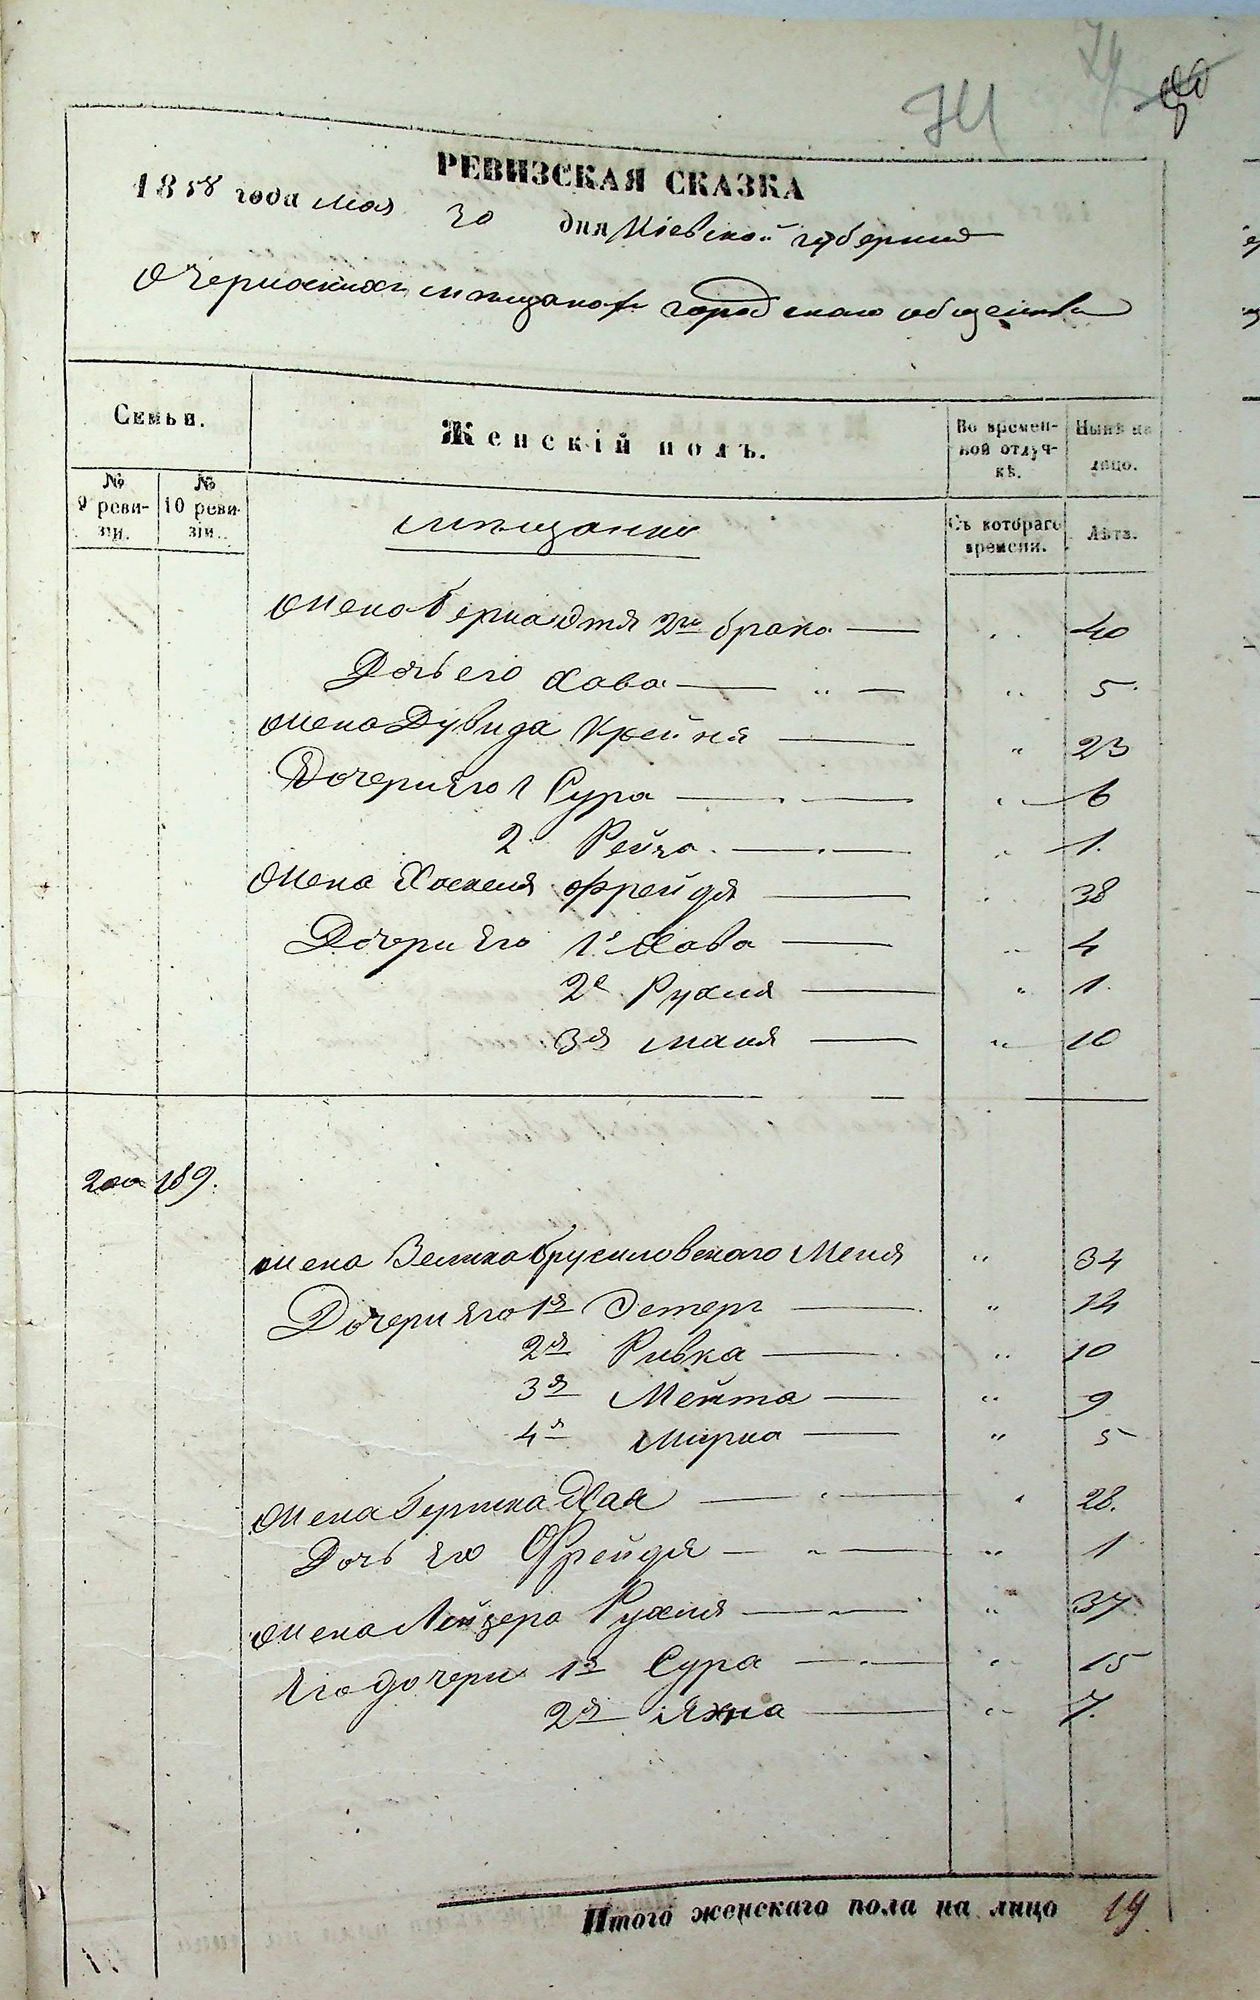 74
РЕВИЗСКАЯ СКАЗКА
1858 года мая 30 дня Кіевской губерніи
О Черкаскихъ мѣщанахъ городскаго общества
Семьи.
Женскій полъ.
Во времен-
ной отлуч-
кѣ.
Нынѣ на
лицо.
№
9 реви-
зіи.
№
10 реви-
зіи.
Съ котораго
времени.
Лѣта.
мѣщанки
Жена Берка 2го брака — 40
Дочь его Хава — " — " 5
Жена Дувида Крейня — " 23
Дочери Его 1 Сура — " 6
2 Рейза — " 1
Жена Хаскеля Фрейдя — " 38
Дочери Его 1я Хава — " 4
2я Рухля — " 1
3я Маля — " 10
200 189.
Жена Зелика Брусиловскаго Меня " 34
Дочери Его 1я Эстеръ — " 14
2я Ривка — " 10
3я Мейта — " 9
4я Мирка — " 5
Жена Бершка Хая — " — " 28.
Дочь Его Фрейдя — " — " 1
Жена Лейзера Рухля — " — " 37
Его дочери 1я Сура — " 15
2я Яхна — " 7.
Итого женскаго пола на лицо 19